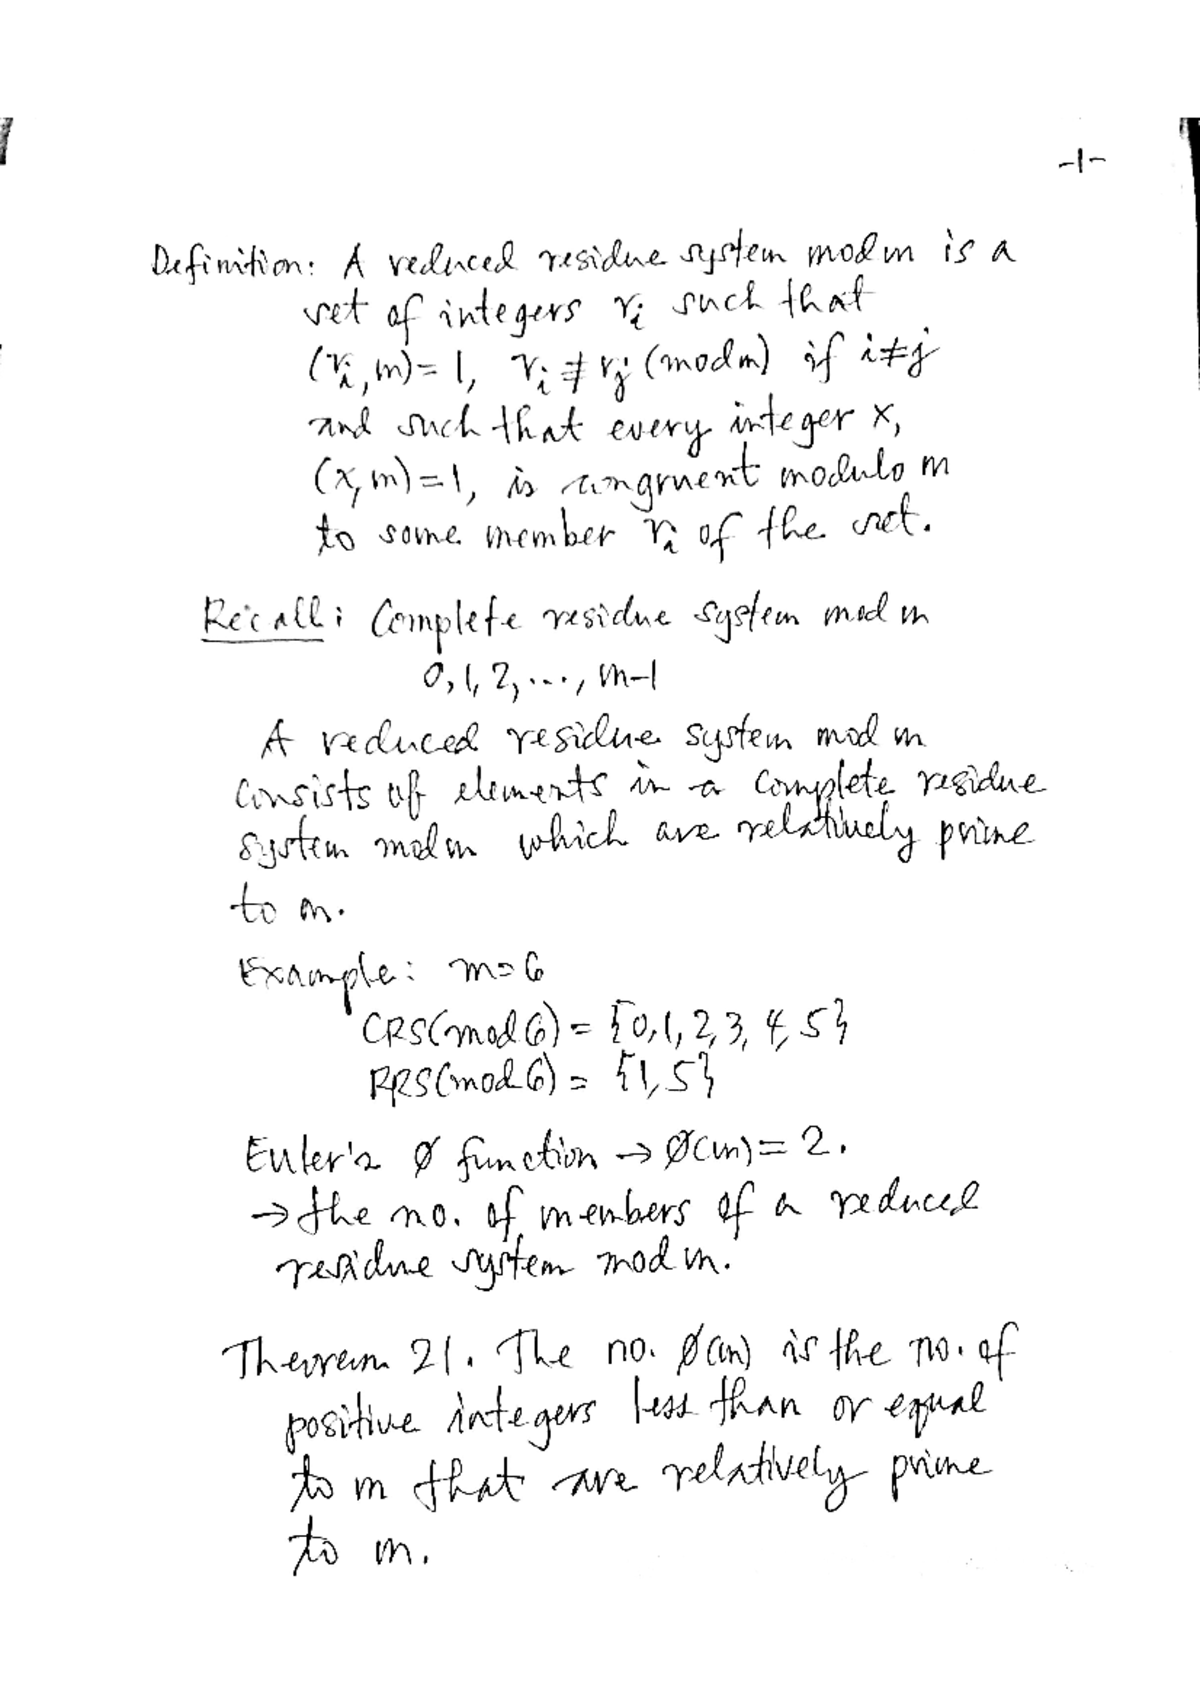 -1-
Definition: A reduced residue system mod m is a
set of integers rᵢ such that
(rᵢ, m) = 1, rᵢ ≢ rⱼ (mod m) if i ≠ j
and such that every integer x,
(x, m) = 1, is congruent modulo m
to some member rᵢ of the set.
Recall: Complete residue system mod m
0, 1, 2, ..., m-1
A reduced residue system mod m
consists of elements in a complete residue
system mod m which are relatively prime
to m.
Example: m = 6
CRS(mod 6) = {0, 1, 2, 3, 4, 5}
RRS(mod 6) = {1, 5}
Euler's Ø function → Ø(m) = 2.
→ the no. of members of a reduced
residue system mod m.
Theorem 21. The no. Ø(m) is the no. of
positive integers less than or equal
to m that are relatively prime
to m.